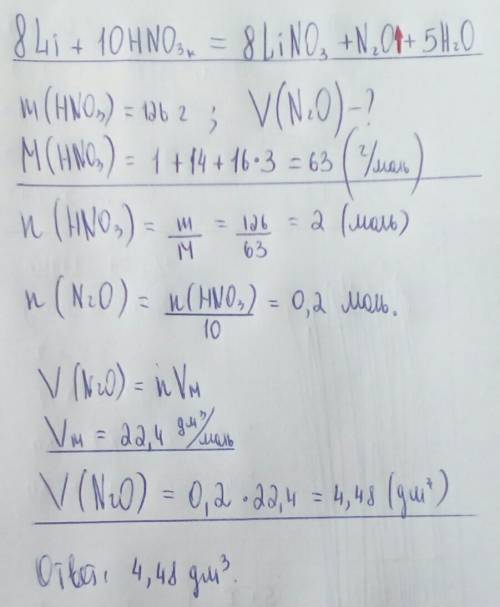 8Li + 10HNO₃ₖ = 8LiNO₃ + N₂O↑ + 5H₂O
m(HNO₃) = 126 г ; V(N₂O) - ?
M(HNO₃) = 1 + 14 + 16·3 = 63 (г/моль)
n(HNO₃) = m/M = 126/63 = 2 (моль)
n(N₂O) = n(HNO₃)/10 = 0,2 моль.
V(N₂O) = nVм
Vм = 22,4 дм³/моль
V(N₂O) = 0,2 · 22,4 = 4,48 (дм³)
Ответ: 4,48 дм³.